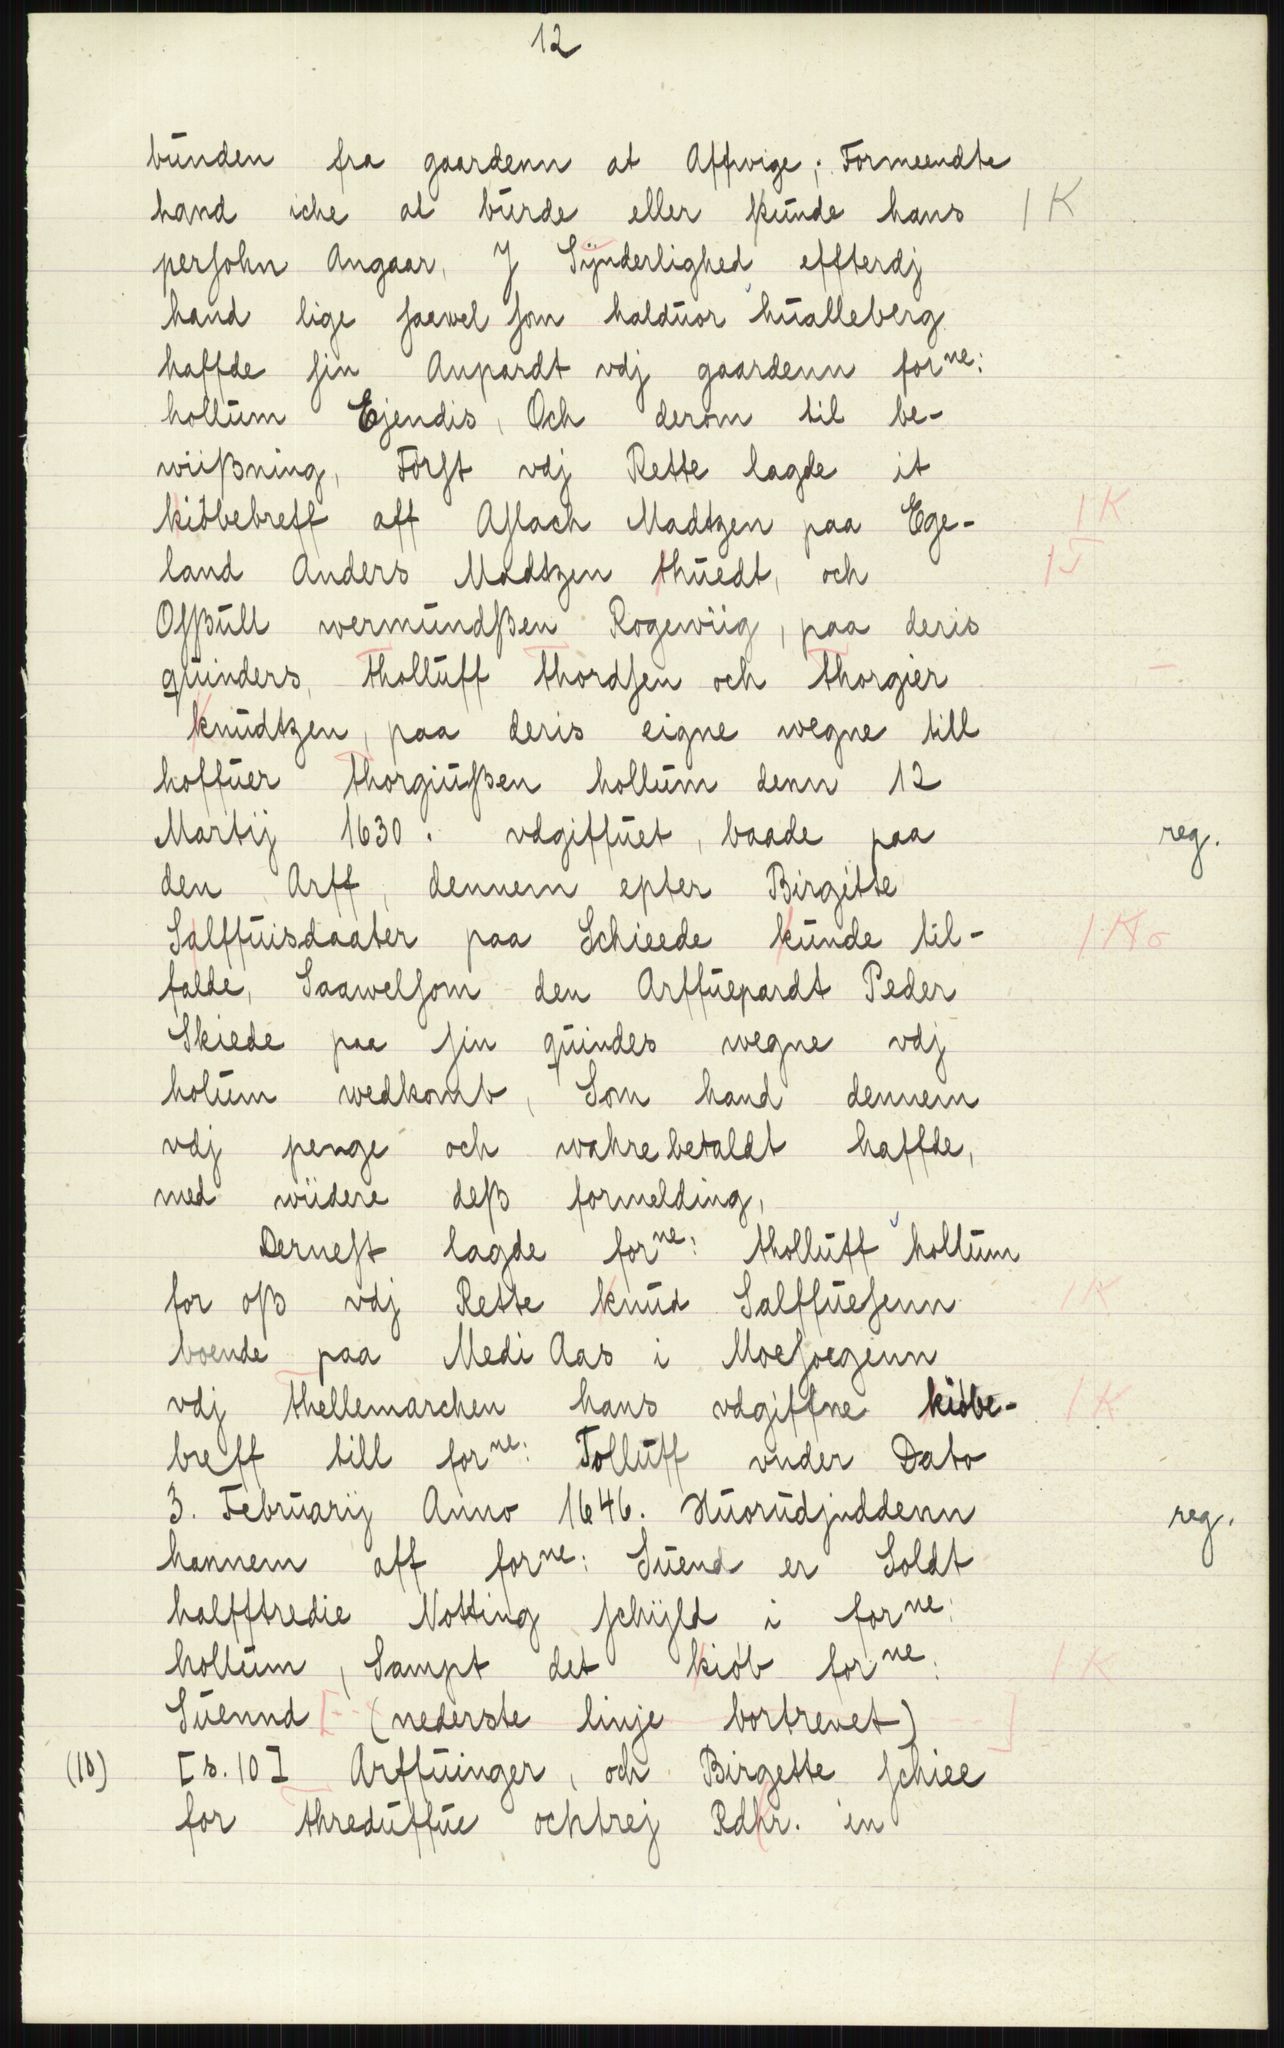 12
bunden fra gaardenn at Affwige; Formeendte
hand iche at burde eller kunde hans | K
persohn Angaar, J Sÿnderlighed effterdj
hand lige saawel som halduor hualleberg
haffde sin Anpardt vdj gaardenn forne:
hollum Ejendis, Och derom til be-
wiißning, Först vdj Rette lagde it
kiöbebreff aff Aslach Madtzen paa Ege- | K
land Anders Madtzen thuedt, och | J
Ofßull wermundßen Rogewiig, paa deris
quinders, tholluff thordsen och thorgier
knudtzen, paa deris eigne wegne till
hoffuer thorgiußen hollum denn 12
Martij 1630. vdgiffuet, baade paa reg.
den Arff, dennem epter Birgitte
Salffuisdaater paa Schieede kunde til-
falde, Saawelsom den Arffuepardt Peder
Skiede paa sin quindes wegne vdj
holum wedkomb, Som hand dennem
vdj penge och wahre betaldt haffde,
med wiidere deß formelding,
Dernest lagde forne: tholluff hollum
for oß vdj Rette knud Salffuesenn | K
boende paa Medi Aas i Moesoegenn
vdj thellemarchen hans vdgiffne kiöbe- | K
breff till forne: Tolluff vnder Dato
3. Februarij Anno 1646. Huorudjnddenn reg.
hannem aff forne: Suend er Soldt
halfftredie Notting schÿld i forne:
hollum, Sampt det kiöb forne: | K
Suennd [-- (nederste linje bortrevet) ]
(10) [s. 10] Arffuinger, och Birgette schiee
for threduffue ochtrej Rdhr. in